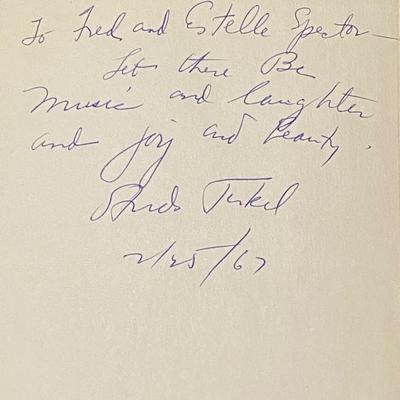 To Fred and Estelle Spector —
Let there Be
Music and laughter
and joy and Beauty.
Studs Terkel
2/25/67